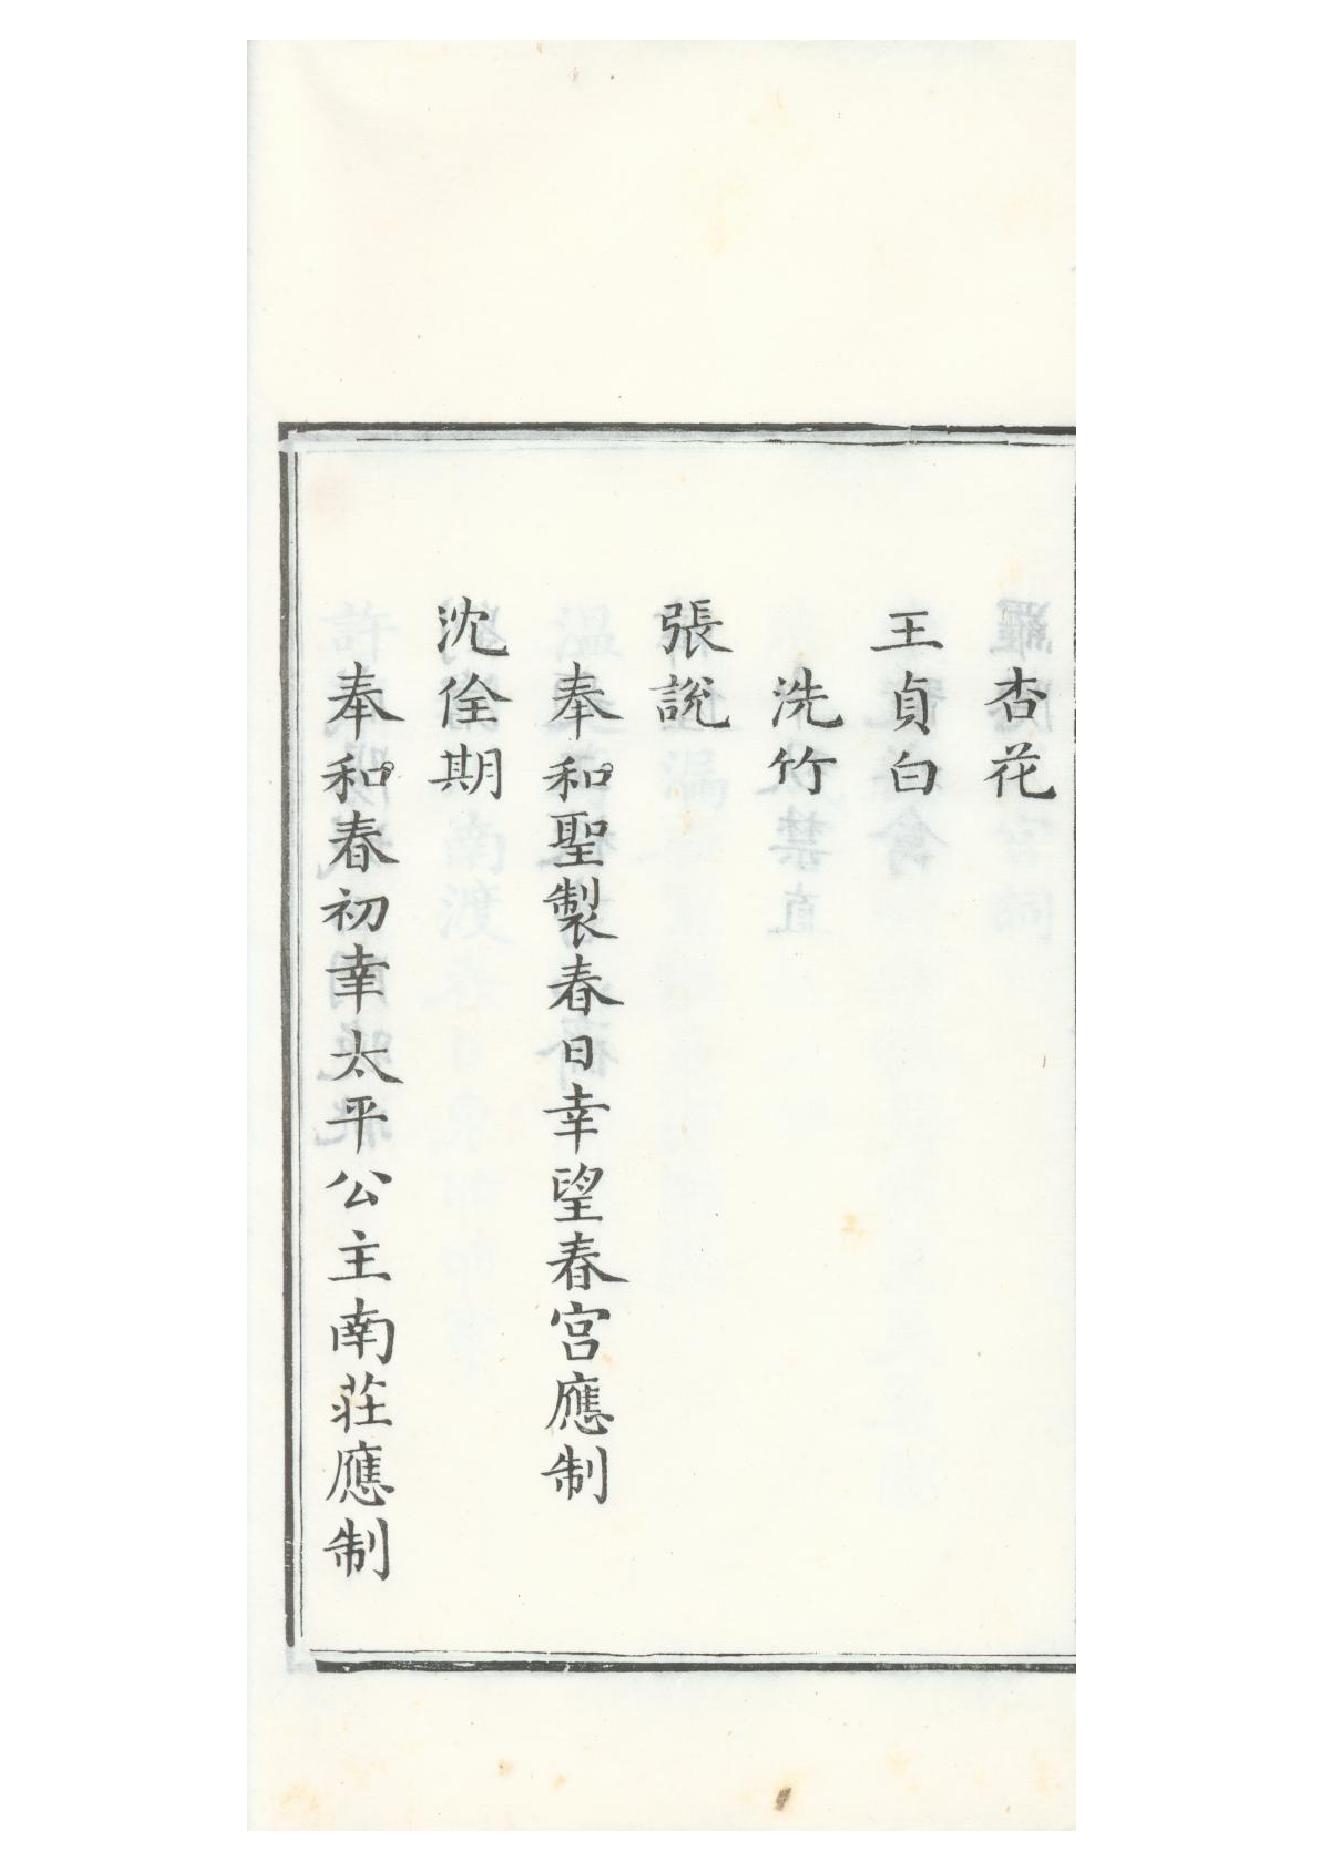 杏花
王貞白
洗竹
張說
奉和聖製春日幸望春宮應制
沈佺期
奉和春初幸太平公主南莊應制